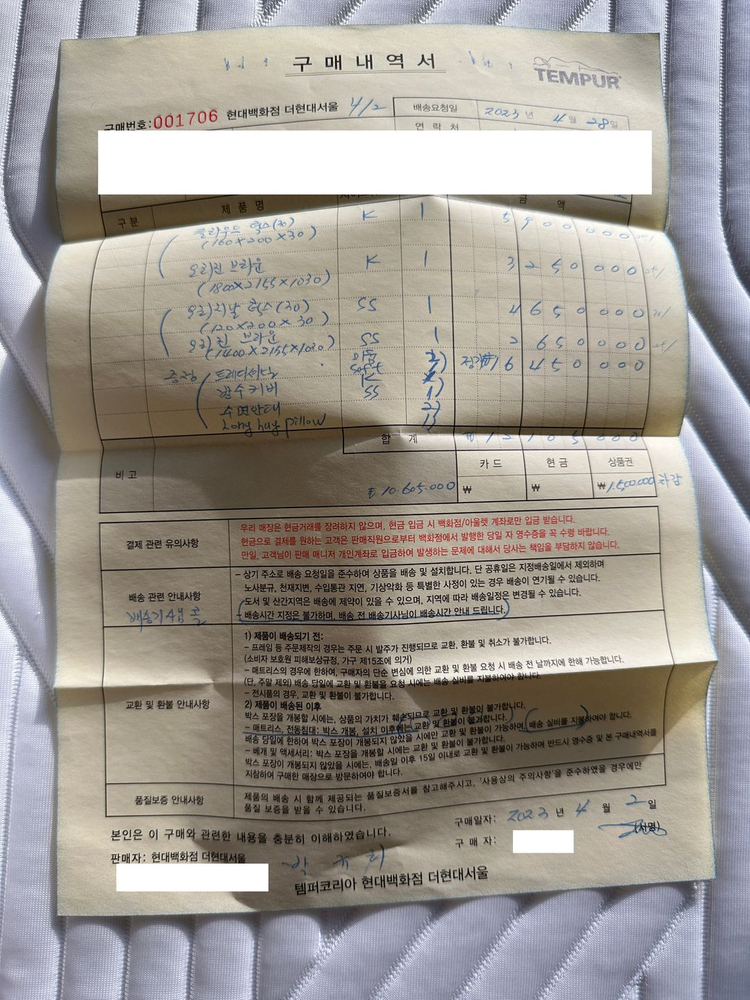 구매내역서
TEMPUR
구매번호: 001706 현대백화점 더현대서울 4/2 배송요청일 2023년 4월 28일
연락처
구분 제품명 금액
클라우드 엘리트(30) K 1 5900000
(160×200×30)
오리진 브라운 K 1 3250000
(1800×2155×1030)
오리지날 엘리트(30) SS 1 4650000
(120×200×30)
오리진 브라운 SS 1 2650000
(1400×2155×1030)
16450000
증정
K
방수커버 SS 1)
수면안대 2)
Long hug pillow 1)
합계 ₩12105000
비고 카드 현금 상품권
₩10.605.000 ₩ ₩ ₩1.500.000 차감
결제 관련 유의사항
우리 매장은 현금거래를 장려하지 않으며, 현금 입금 시 백화점/아울렛 계좌로만 입금 받습니다.
현금으로 결제를 원하는 고객은 판매직원으로부터 백화점에서 발행한 당일 자 영수증을 꼭 수령 바랍니다.
만일, 고객님이 판매 매니저 개인계좌로 입금하여 발생하는 문제에 대해서 당사는 책임을 부담하지 않습니다.
배송 관련 안내사항
- 상기 주소로 배송 요청일을 준수하여 상품을 배송 및 설치합니다. 단 공휴일은 지정배송일에서 제외하며
노사분규, 천재지변, 수입통관 지연, 기상악화 등 특별한 사정이 있는 경우 배송이 연기될 수 있습니다.
도서 및 산간지역은 배송에 제약이 있을 수 있으며, 지역에 따라 배송일정은 변경될 수 있습니다.
배송시간 지정은 불가하며, 배송 전 배송기사님이 배송시간 안내 드립니다.
교환 및 환불 안내사항
1) 제품이 배송되기 전:
- 프레임 등 주문제작의 경우는 주문 시 발주가 진행되므로 교환, 환불 및 취소가 불가합니다.
(소비자 보호원 피해보상규정, 가구 제15조에 의거)
- 매트리스의 경우에 한하여, 구매자의 단순 변심에 의한 교환 및 환불 요청 시 배송 전 날까지에 한해 가능합니다.
(단, 주말 제외) 배송 당일에 교환 및 환불을 요청 시에는 배송 실비를 지불하여야 합니다.
- 전시품의 경우, 교환 및 환불이 불가합니다.
2) 제품이 배송된 이후
박스 포장을 개봉할 시에는, 상품의 가치가 훼손되므로 교환 및 환불이 불가합니다.
- 매트리스, 전동침대: 박스 개봉, 설치 이후에는 교환 및 환불이 불가합니다.
배송 당일에 한하여 박스 포장이 개봉되지 않았을 시에만 교환 및 환불이 가능하며, 배송 실비를 지불하여야 합니다.
- 베개 및 액세서리: 박스 포장을 개봉할 시에는 교환 및 환불이 불가합니다.
박스 포장이 개봉되지 않았을 시에는, 배송일 이후 15일 이내로 교환 및 환불이 가능하며 반드시 영수증 및 본 구매내역서를
지참하여 구매한 매장으로 방문하여야 합니다.
품질보증 안내사항
제품의 배송 시 함께 제공되는 품질보증서를 참고해주시고, '사용상의 주의사항'을 준수하였을 경우에만
품질 보증을 받을 수 있습니다.
본인은 이 구매와 관련한 내용을 충분히 이해하였습니다. 구매일자: 2023년 4월 2일
구매자: (서명)
판매자: 현대백화점 더현대서울
템퍼코리아 현대백화점 더현대서울